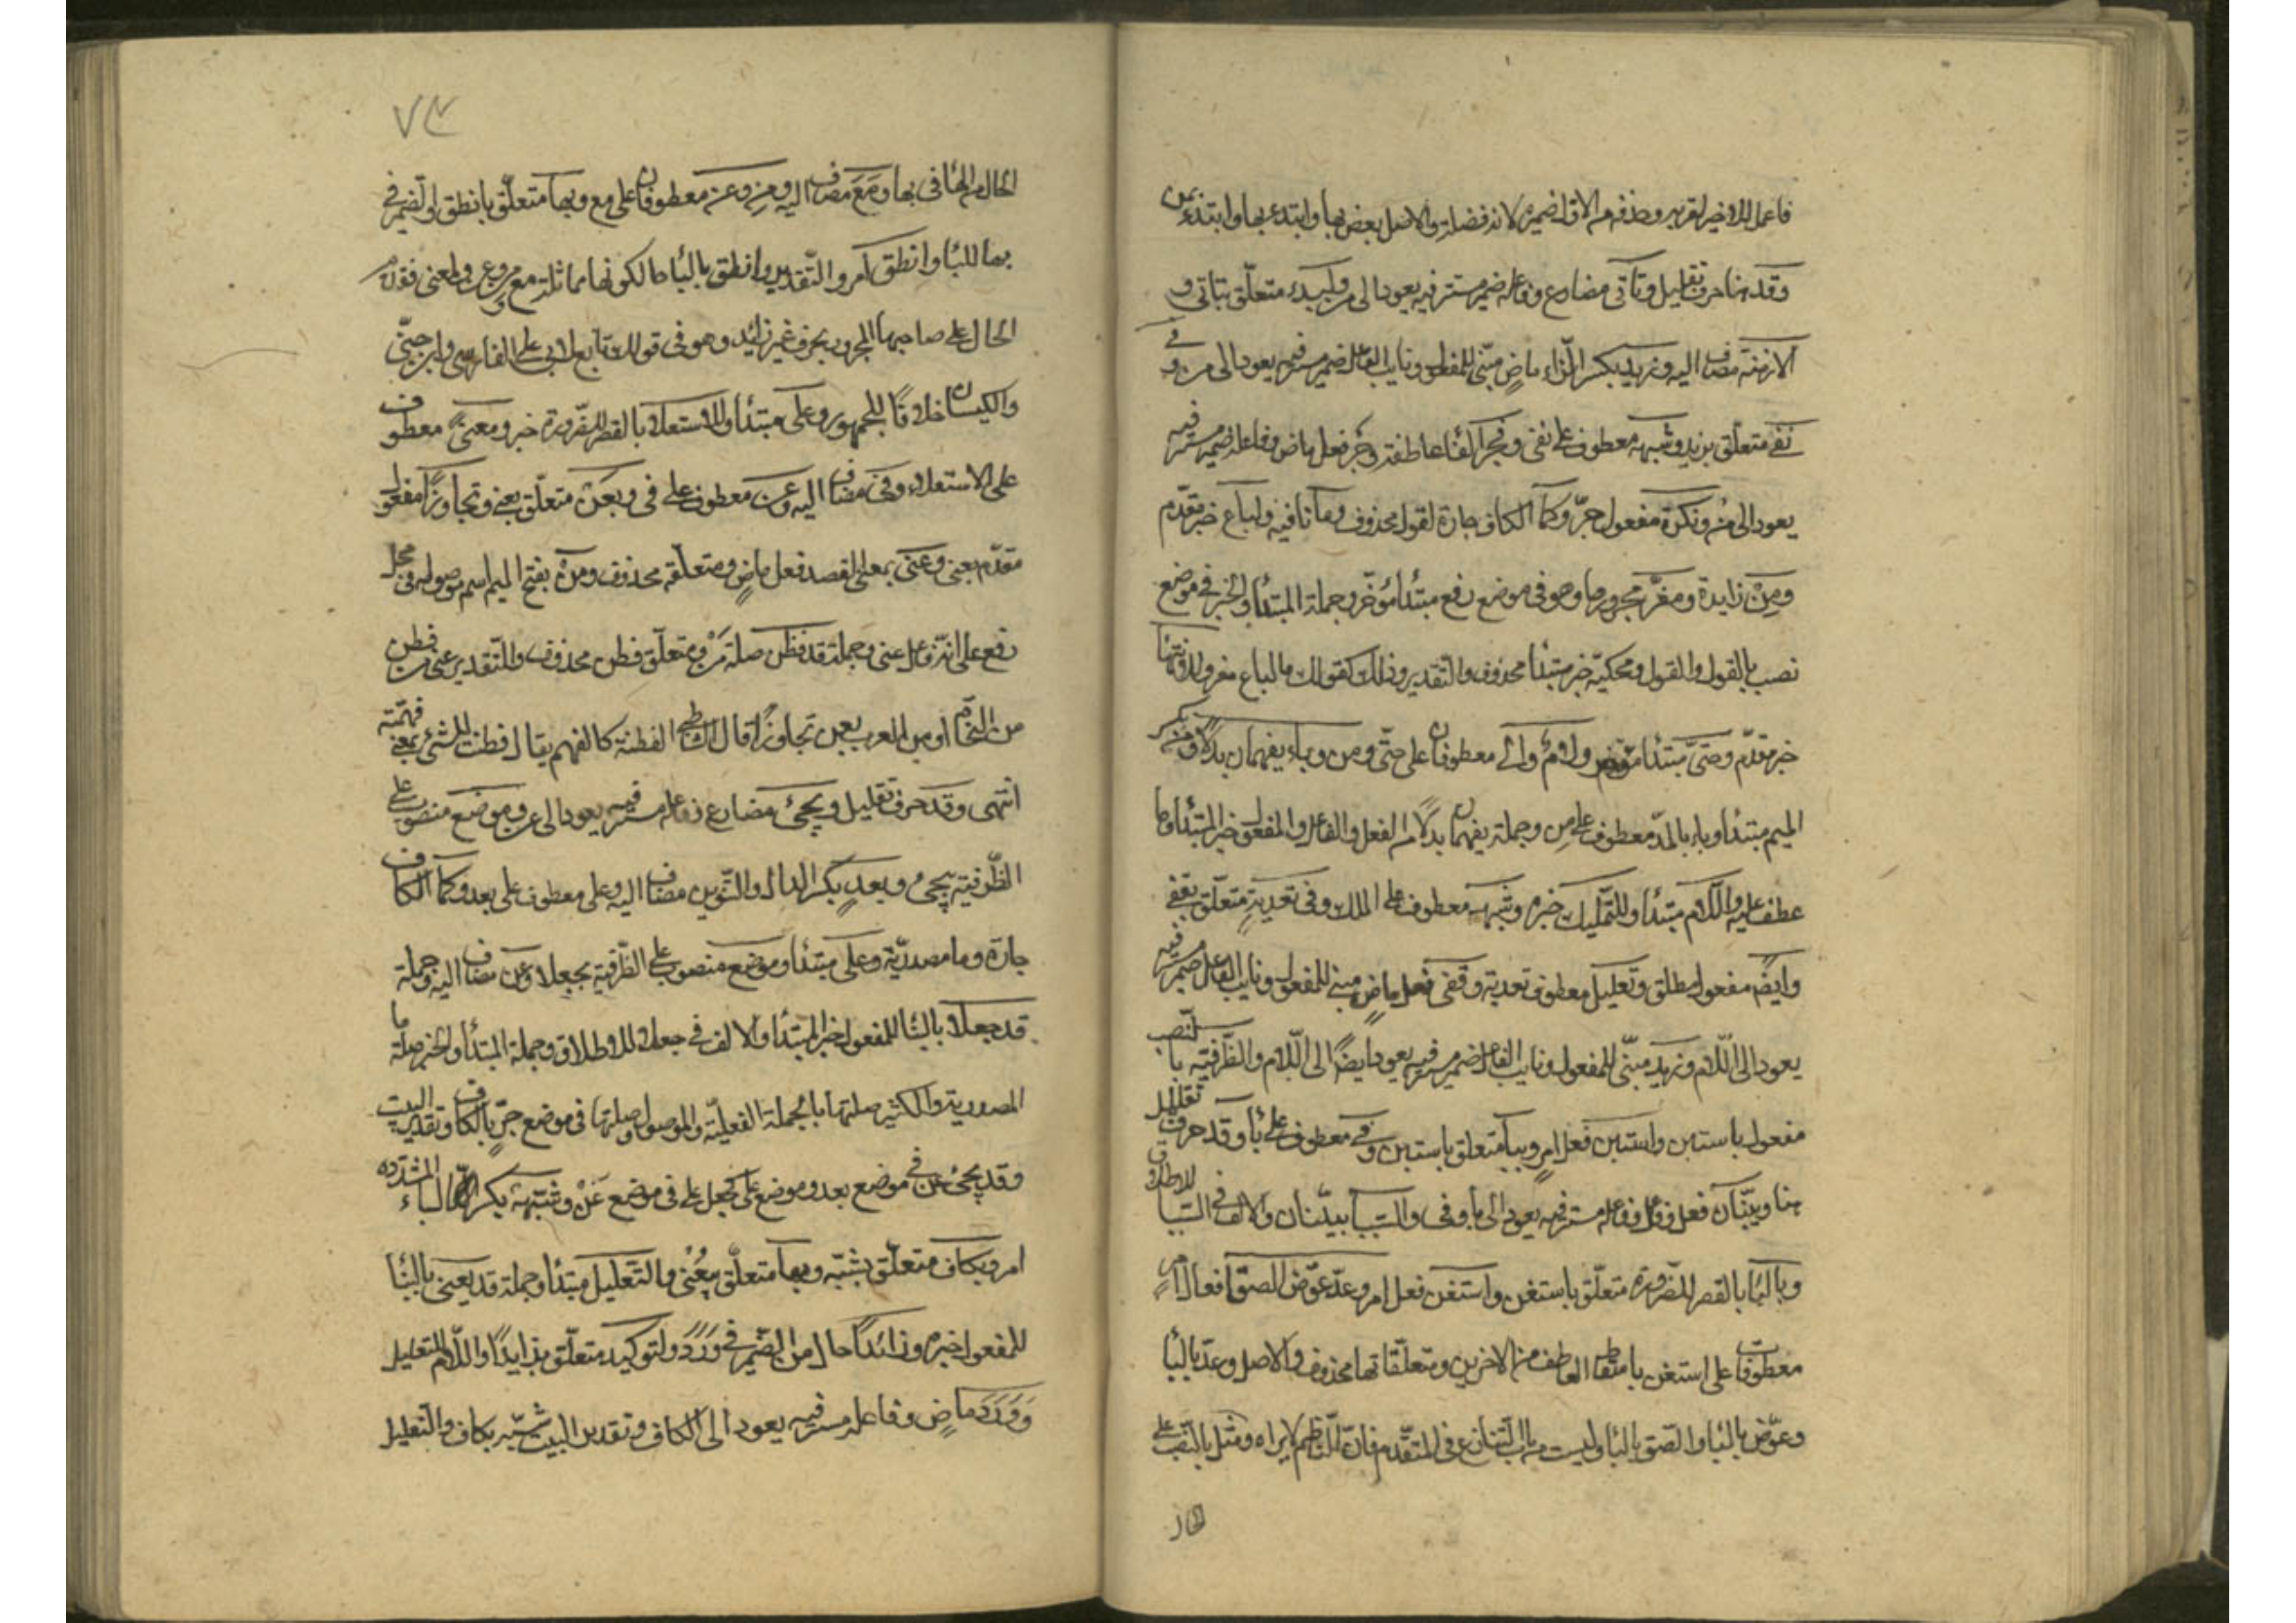 فاعمل الاخير لقربه وحذف من الاول ضميره لانه فضلة والاصل بعض بها وابتدء بها وابتدء بمن
وقد هنا حرف تقليل وتأتى مضارع وفاعله ضمير مستتر فيه يعود الى من ولبدء متعلّق بتاتى و
الازمنة مضاف اليه وزيد بكسر الزاء ماض مبنّى للمفعول ونايب الفاعل ضمير مستتر فيه يعود الى من وفى
نفى متعلّق بزيد وشبهه معطوف على نفى وفجر الفاء عاطفة وجر فعل ماض وفاعله ضمير مستتر فيه
يعود الى من ونكرة مفعول جرّ وكما الكاف جارة لقول محذوف وما نافيه ولباغ خبر مقدّم
ومن زايدة ومفرّ مجرورها وهو فى موضع رفع مبتدأ مؤخّر وجملة المبتدأ والخبر فى موضع
نصب بالقول والقول ومحكيّه خبر مبتدأ محذوف والتقدير وذلك كقولك ما لباغ مفر وللانتها
خبر مقدّم وحتىّ مبتدأ مؤخر ولام والى معطوفان على حتّى ومن وباء يفهمان بدلا ومن بكسر
الميم مبتدأ وباء بالمدّ معطوف على من وجملة يفهمان بدلا من الفعل والفاعل والمفعول خبر المبتدأ وما
عطف عليه واللّام مبتدأ وللتمّليك خبره وشبهه معطوف على الملك وفى تعدية متعلّق بقفى
وايضًا مفعول مطلق وتعليل معطوف تعدية وقفى فعل ماض مبنى للمفعول ونايب الفاعل ضمير مستتر فيه
يعود الى اللّام وزيد مبنّى للمفعول ونايب الفاعل ضمير مستتر فيه يعود ايضًا الى اللّام والظّرفيّه بالنّصب
مفعول باستبن واستبن فعل امر وببا متعلق باستبن وفى معطوف على با وقد حرف تقليل
هنا ويبيّنان فعل وفاعل وفاعله مستتر فيه يعود الى با وفى والسّببا ببيّنان والالف فى السّببا للاطلاق
وبالبا بالقصر للضّرورة متعلّق باستغن واستغن فعل امر وعدّ عوّض الصق افعال امر
معطوفات على استغن باسقاط العاطف من الاخرين ومتعلّقاتها محذوف والاصل وعدّ بالبأ
وعوّض بالبأ والصق بالبأ وليست من باب التنازع فى المتقدّم فانّ النّاظم لا يراه ومثل بالنّصب على
الحال
٧٣
الحال من الهاء فى بها ومع مضاف اليه ومن وعن معطوفان على مع وبها متعلّق بانطق والضّمير فى
بها للبأ وانطق امر والتّقدير وانطق بالبأ حالكونها مماثلة مع ومن وعن والمعنى فقدّم
الحال على صاحبها المجرور بحرف غير زائد وهو فى قولك تابع لابى على الفارسى وابن جنّى
والكيسان خلافًا للجمهور وعلى مبتدأ وللاستعلا بالقصر للضّرورة خبر ومعنى معطوف
على الاستعلاء وفى مضاف اليه وعن معطوف على فى وبعن متعلّق بعنى وتجاوزًا مفعول
مقدّم بعنى وعنى بمعنى القصد فعل ماض ومتعلّقه محذوف ومن بفتح الميم اسم موصول فى محل
رفع على انّه فاعل عنى وجملة قد فطن صلة من ومتعلّق فطن محذوف والتّقدير عنى من فطن
من النحّاة او من العرب بعن تجاوزًا قال الشاطبى الفطنة كالفهم يقال فطنت للشئ بمعنى فهمته
انتهى وقد حرف تقليل ويجئ مضارع فاعله مستتر فيه يعود الى عن وموضع منصوب على
الظّرفيّة بيجئ وبعد بكسر الدال والتّنوين مضاف اليه وعلى معطوف على بعد وكما الكاف
جارة وما مصدريّة وعلى مبتدأ وموضع منصوب على الظّرفيّة بجعلا وعن مضاف اليه وجملة
قد جعلا بالبنأ للمفعول خبر المبتدأ والالف فى جعلا للاطلاق وجملة المبتدأ والخبر صلة ما
المصدرية والكثير صلتها بالجملة الفعليّة والموصول وصلتها فى موضع جرّ بالكاف وتقدير البيت
وقد يجئ عن فى موضع بعد وموضع على كجعل على فى موضع عن وشبّه بكسر الباء المشدّده
امر وبكاف متعلّق بشبّه وبها متعلّق بيُعْنى والتّعليل مبتدأ وجملة قد يعنى بالبنأ
للمفعول خبره وزائدًا حال من الضّمير فى وَرَدَ ولتوكيد متعلّق بزايدًا واللّام للتعليل
وَوَرَدَ ماضٍ وفاعله مستتر فيه يعود الى الكاف وتقدير البيت شبّه بكاف والتعليل